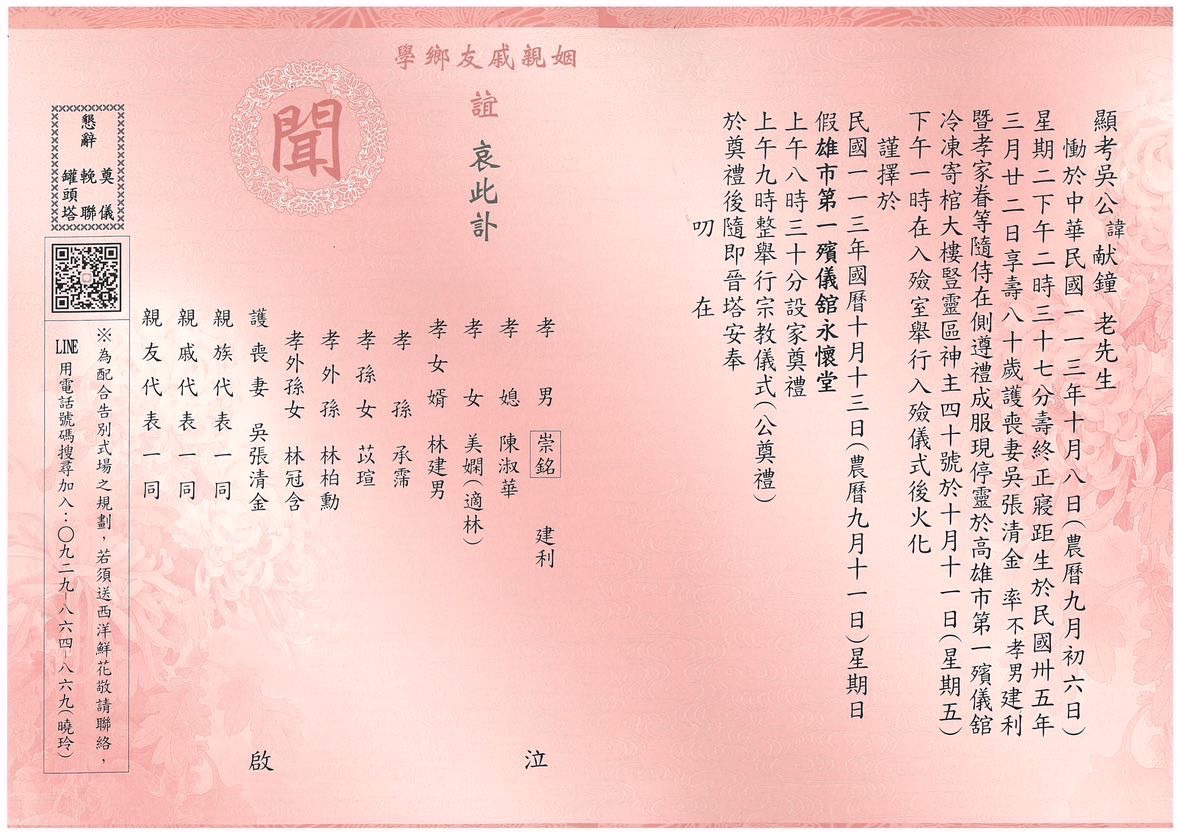 顯考吳公諱献鐘 老先生
慟於中華民國一一三年十月八日(農曆九月初六日)
星期二下午二時三十七分壽終正寢距生於民國卅五年
三月廿二日享壽八十歲護喪妻吳張清金 率不孝男建利
暨孝家眷等隨侍在側遵禮成服現停靈於高雄市第一殯儀舘
冷凍寄棺大樓豎靈區神主四十號於十月十一日(星期五)
下午一時在入殮室舉行入殮儀式後火化
謹擇於
民國一一三年國曆十月十三日(農曆九月十一日)星期日
假雄市第一殯儀舘永懷堂
上午八時三十分設家奠禮
上午九時整舉行宗教儀式(公奠禮)
於奠禮後隨即晉塔安奉
叨在
姻親戚友鄉學
誼 哀此訃
聞
孝男 崇銘 建利
孝媳 陳淑華
孝女 美嫻(適林)
孝女婿 林建男
孝孫 承霈
孝孫女 苡瑄
孝外孫 林柏勳
孝外孫女 林冠含
泣
護喪妻 吳張清金
親族代表一同
親戚代表一同
親友代表一同
啟
懇辭
奠儀
輓聯
罐頭塔
※為配合告別式場之規劃，若須送西洋鮮花敬請聯絡，
LINE 用電話號碼搜尋加入：〇九二九-八六四-八六九(曉玲)